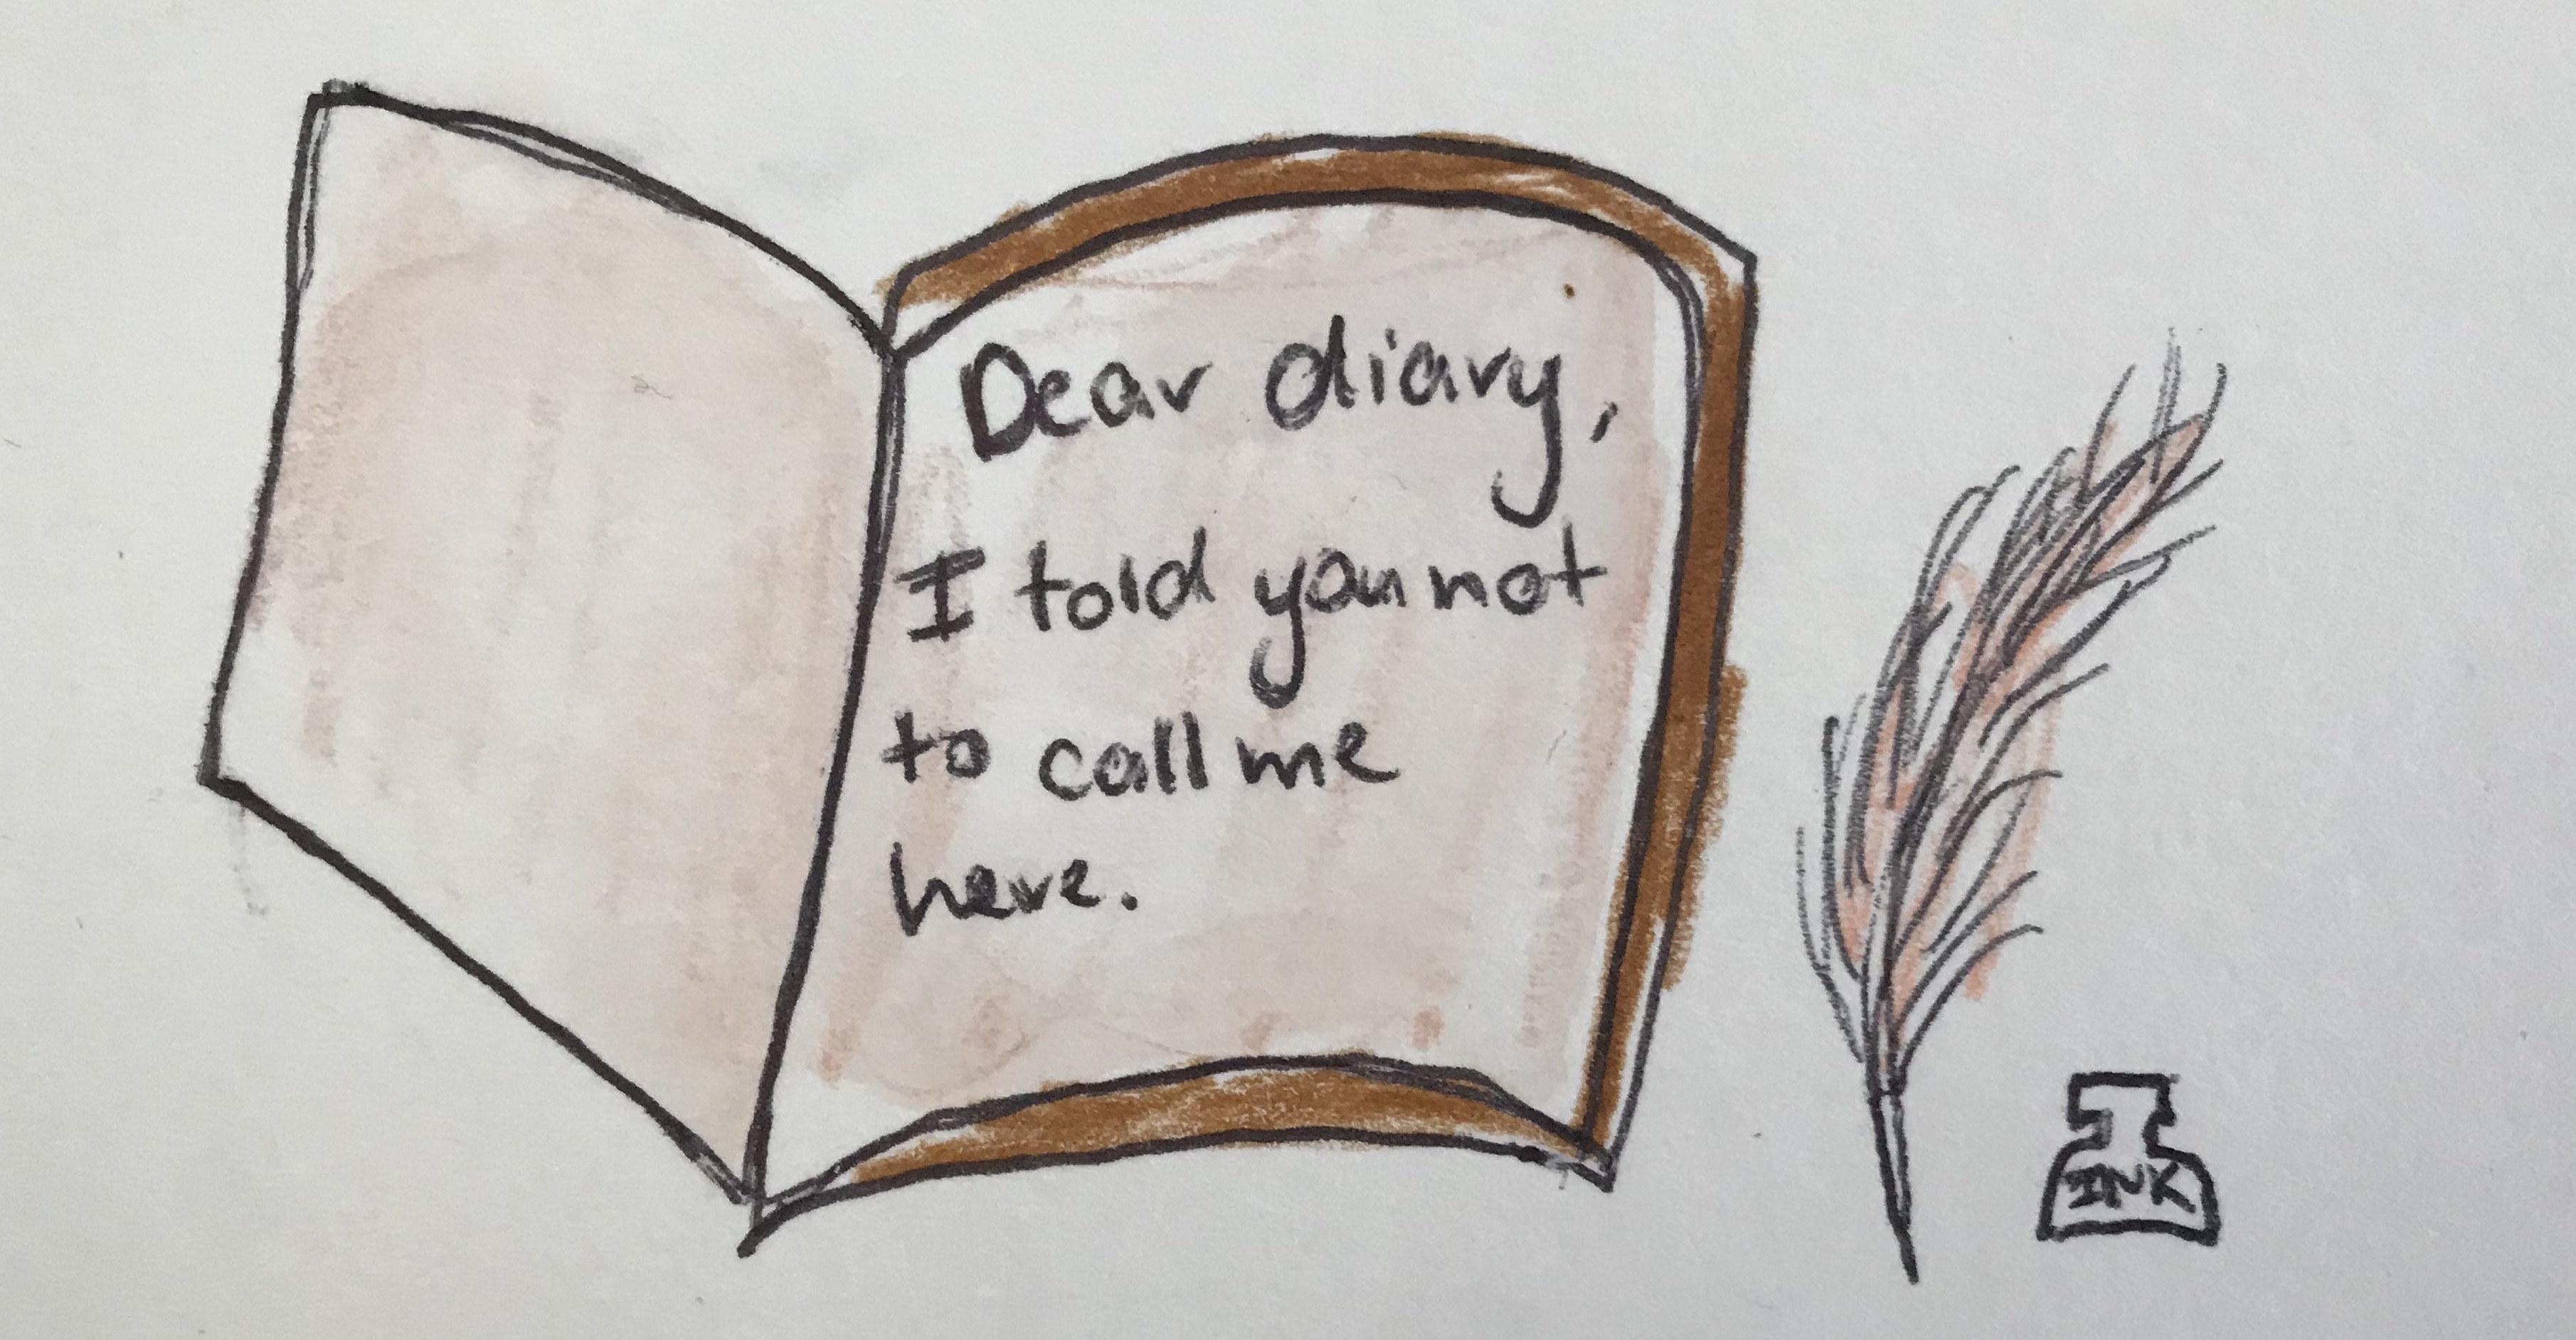 Dear diary,
I told you not
to call me
here.
INK